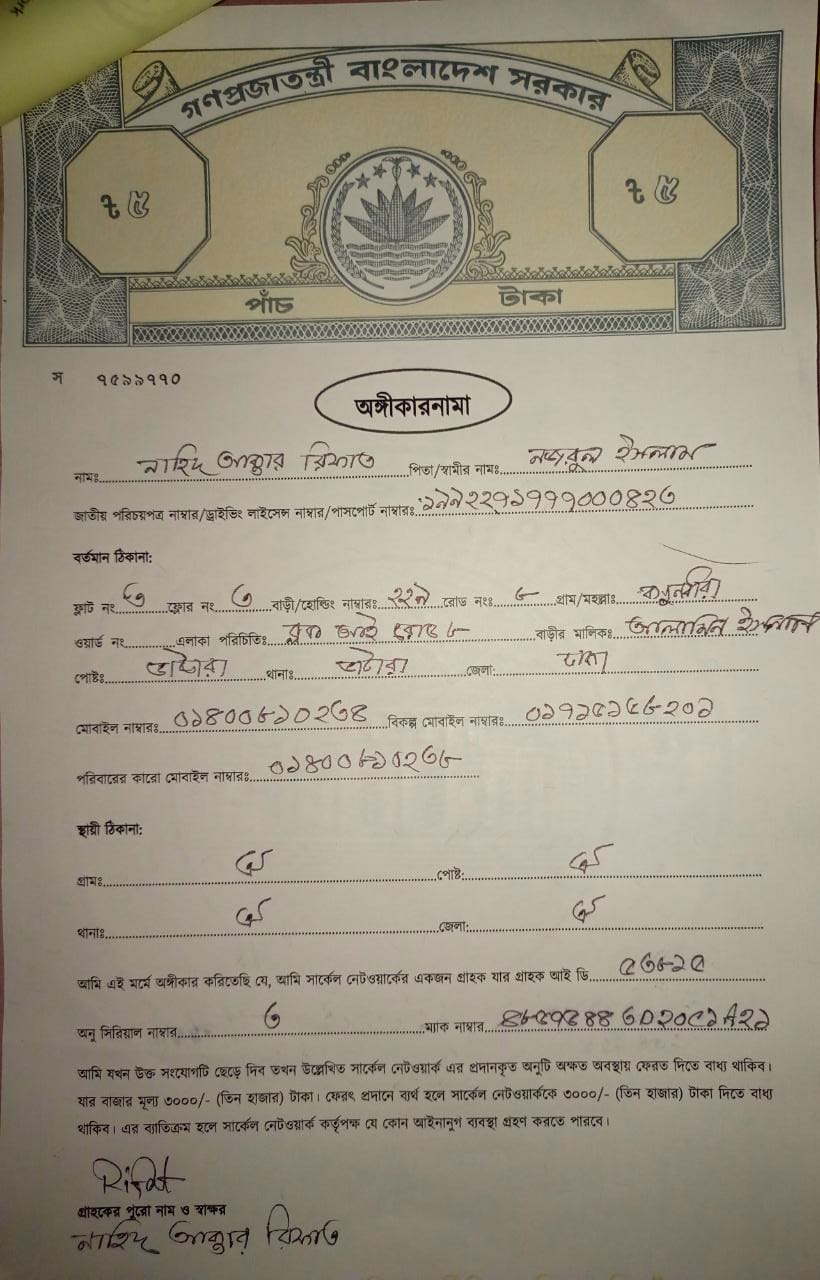 গণপ্রজাতন্ত্রী বাংলাদেশ সরকার
৳ ৫ ৳ ৫
পাঁচ টাকা
স ৭৫৯৯৭৭০
অঙ্গীকারনামা
নামঃ নাহিদ আক্তার রিফাত পিতা/স্বামীর নামঃ নজরুল ইসলাম
জাতীয় পরিচয়পত্র নাম্বার/ড্রাইভিং লাইসেন্স নাম্বার/পাসপোর্ট নাম্বারঃ
বর্তমান ঠিকানা:
ফ্লাট নং ৩ ফ্লোর নং ৩ বাড়ী/হোল্ডিং নাম্বারঃ ২২৯ রোড নংঃ ৬ গ্রাম/মহল্লাঃ
ওয়ার্ড নং এলাকা পরিচিতিঃ ব্লক আই রোড ৬ বাড়ীর মালিকঃ আলামিন ইসলাম
পোষ্টঃ ভাটারা থানাঃ ভাটারা জেলা: ঢাকা
মোবাইল নাম্বারঃ ০১৪০০৬১০২৩৪ বিকল্প মোবাইল নাম্বারঃ ০১৭১৫১৫৬২০১
পরিবারের কারো মোবাইল নাম্বারঃ ০১৪০০৬১০২৩৬
স্থায়ী ঠিকানা:
গ্রামঃ ঐ পোষ্ট: ঐ
থানাঃ ঐ জেলা: ঐ
আমি এই মর্মে অঙ্গীকার করিতেছি যে, আমি সার্কেল নেটওয়ার্কের একজন গ্রাহক যার গ্রাহক আই ডি ৫৩৬১৫
অনু সিরিয়াল নাম্বার ৩ ম্যাক নাম্বার
আমি যখন উক্ত সংযোগটি ছেড়ে দিব তখন উল্লেখিত সার্কেল নেটওয়ার্ক এর প্রদানকৃত অনুটি অক্ষত অবস্থায় ফেরত দিতে বাধ্য থাকিব।
যার বাজার মূল্য ৩০০০/- (তিন হাজার) টাকা। ফেরৎ প্রদানে ব্যর্থ হলে সার্কেল নেটওয়ার্ককে ৩০০০/- (তিন হাজার) টাকা দিতে বাধ্য
থাকিব। এর ব্যতিক্রম হলে সার্কেল নেটওয়ার্ক কর্তৃপক্ষ যে কোন আইনানুগ ব্যবস্থা গ্রহণ করতে পারবে।
Rifat
গ্রাহকের পুরো নাম ও স্বাক্ষর
নাহিদ আক্তার রিফাত